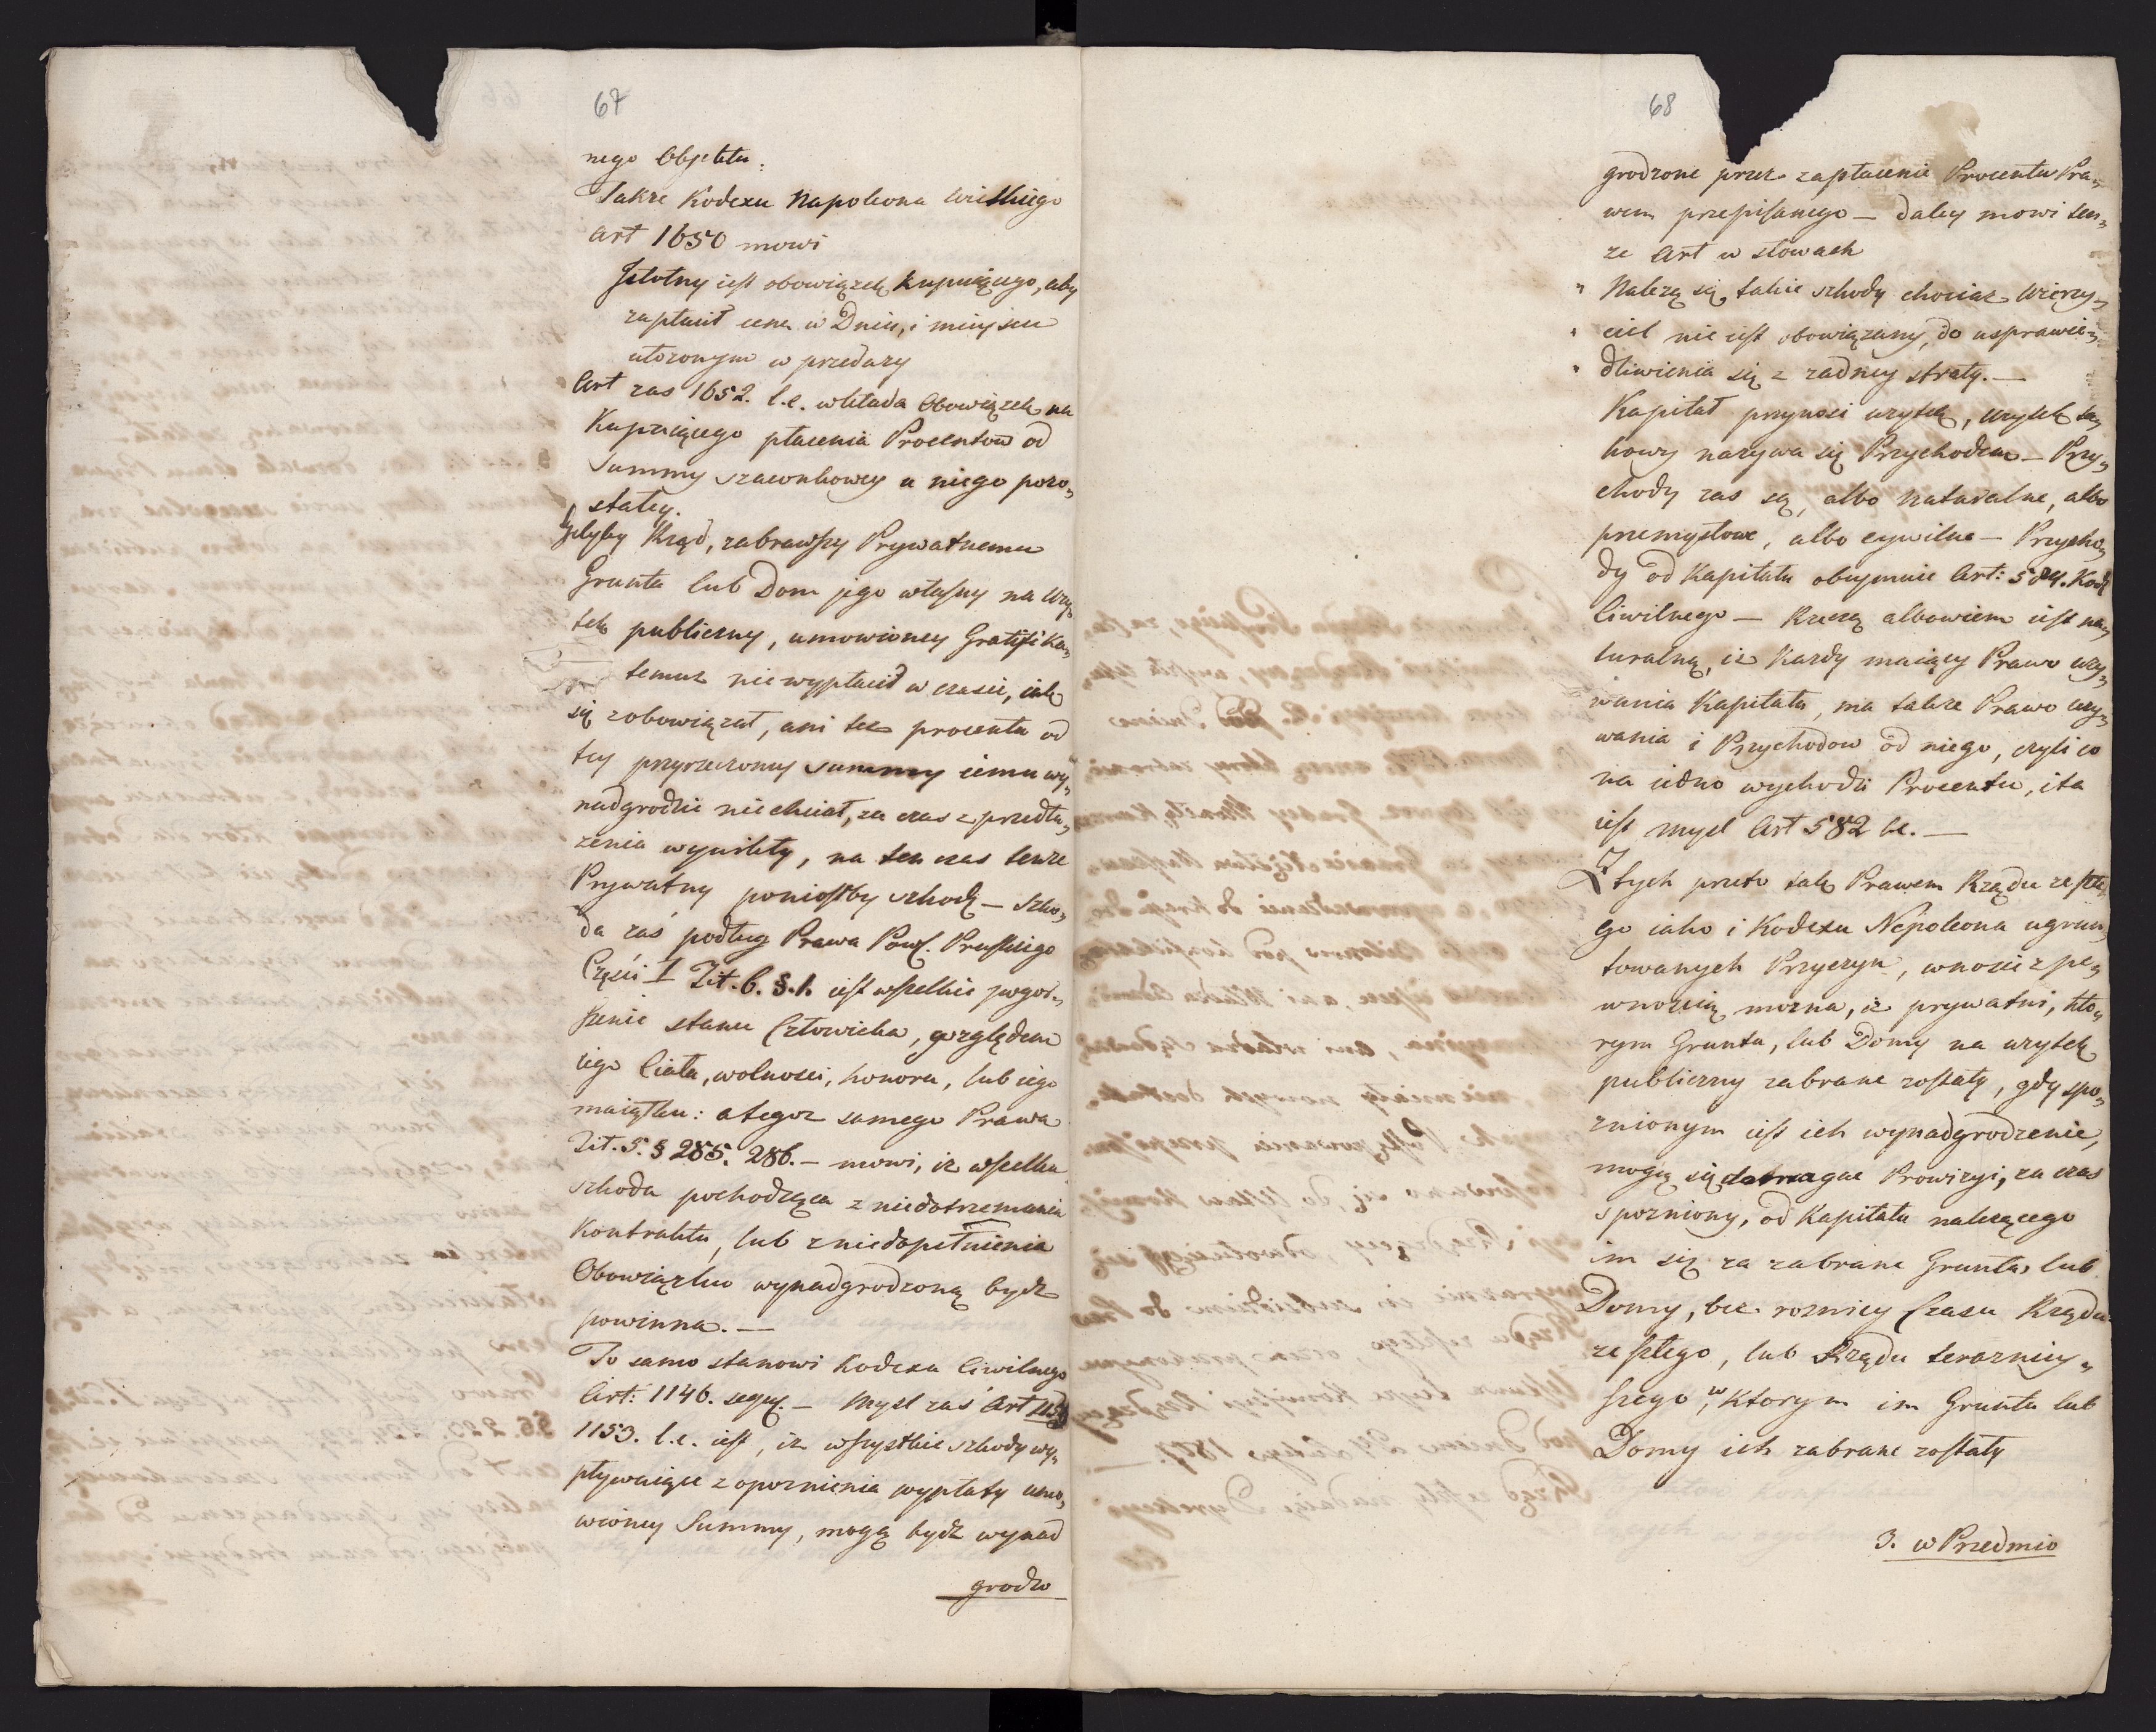 67
nego Objektu.
Także Kodexu Napoleona Wielkiego
Art 1650 mowi
Istotny iest obowiązek kupuiącego, aby
zapłacił cenę w Dniu, i mieyscu
ułożonym w przedaży
Art zas 1652. l.c. wkłada Obowiązek na
Kupuiącego płacenia Procentow od
Summy szacunkowey u niego pozo„
stałey.
Gdyby Rząd, zabrawszy Prywatnemu
Grunta lub Dom jego własny na Uży„
tek publiczny, umowioney Gratifika„
temuż nie wypłacił w czasie, iak
się zobowiązał, ani też procentu od
tey przyrzeczoney summy iemu wy„
nadgrodzić nie chciał, za czas z przedłu„
żenia wynikły, na ten czas tenże
Prywatny poniosłby szkodę – szko„
da zaś podług Prawa Pow. Pruskiego
Części I Tit. 6. §. 1. iest wszelkie pogor„
szenie stanu Człowieka, względem
iego Ciała, wolnosci, honoru, lub iego
maiątku: a tegoż samego Prawa
Tit. 5. § 285. 286. – mowi, iż wszelka
szkoda pochodząca z niedotrzymania
Kontraktu, lub z niedopełnienia
Obowiązku wynadgrodzoną bydź
powinna. –
To samo stanowi Kodexu Ciwilnego
Art: 1146. seqq. – Mysl zaś Art
1153. l.c. iest, iż wszystkie szkody wy„
pływaiące z opoznienia wypłaty umo„
wioney Summy, mogą bydź wynad
grodzo
68
grodzone przez zapłacenie Procentu Pra„
wem przepisanego – daley mowi ten„
że Art w słowach
„ Należą się takie szkody chociaż Wierzy„
„ ciel nie iest obowiązany, do usprawie„
„ dliwienia się z żadney straty. –
Kapitał przynosi użytek, użytek ta„
kowy nazywa się Przychodem – Przy„
chody zas są, albo naturalne, albo
przemysłowe, albo cywilne – Przycho„
dy od Kapitału obeymuie Art: 584. Kod
Ciwilnego – Rzeczą albowiem iest na„
turalną, iż Każdy maiący Prawo uży„
wania Kapitału, ma także Prawo uży„
wania i Przychodow od niego, czyli co
na iedno wychodzi Procentu, i ta
iest mysl Art 582 l.c. –
Z tych przeto tak Prawem Rządu zeszłe„
go iako i Kodexu Nepoleona ugrun„
towanych Przyczyn, wnosić z pe„
wnoscią można, iż prywatni, kto„
rym Grunta, lub Domy na użytek
publiczny zabrane zostały, gdy spo„
znionym iest ich wynadgrodzenie,
mogą się domagać Prowizyi, za czas
spozniony, od Kapitału należącego
im się za zabrane Grunta, lub
Domy, bez rożnicy Czasu Rządu
zeszłego, lub Rządu teraznier„
szego, w Ktorym im Grunta lub
Domy ich zabrane zostały
3. w Przedmio